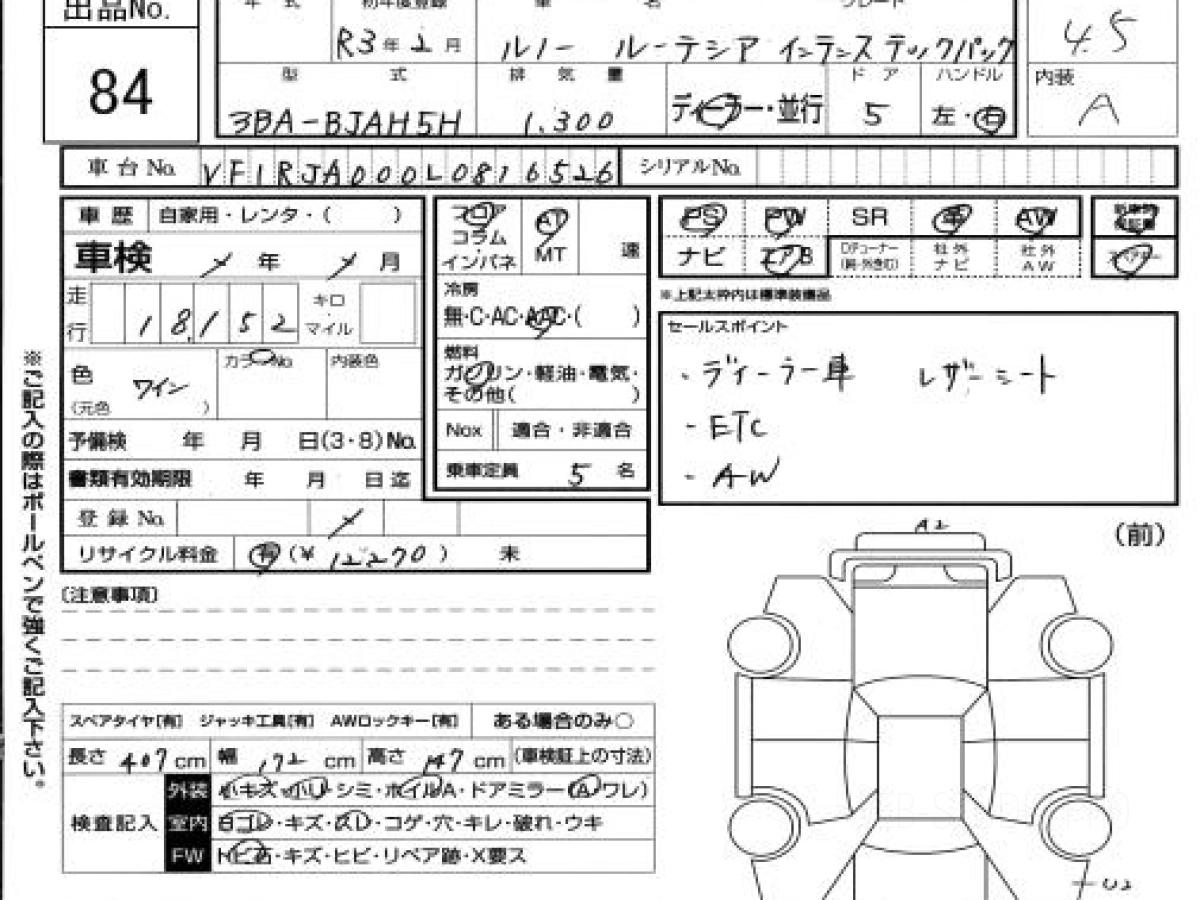 出品No.
84
年 式
初年度登録
車 名
グレード
R3年2月
ルノー ルーテシア インテンステックパック
4.5
型 式
排 気 量
ディーラー・並行
ド ア
ハンドル
内装
3BA-BJAH5H
1.300
5
左・右
A
車台No. VF1RJA000L0816526
シリアルNo.
車 歴 自家用・レンタ・( )
車検 年 月
走行 18,152 キロ マイル
色 ワイン
(元色 )
カラーNo
内装色
予備検 年 月 日(3・8)No.
書類有効期限 年 月 日迄
登 録 No.
リサイクル料金 有(¥ 12270 ) 未
フロア
コラム
インパネ
AT
MT
速
冷房
無・C・AC・AAC・( )
燃料
ガソリン・軽油・電気・
その他( )
Nox 適合・非適合
乗車定員 5 名
PS PW SR 革 AW
ナビ エアB
社外ナビ
社外AW
※上記太枠内は標準装備品
セールスポイント
・ディーラー車 レザーシート
・ETC
・AW
※ご記入の際はボールペンで強くご記入下さい。
(注意事項)
A2
(前)
スペアタイヤ[有] ジャッキ工具[有] AWロックキー[有] ある場合のみ○
長さ 407cm 幅 172 cm 高さ 147 cm (車検証上の寸法)
検査記入
外装 小キズ・小凹・シミ・ホイルA・ドアミラー(A・ワレ)
室内 白ゴレ・キズ・スレ・コゲ・穴・キレ・破れ・ウキ
FW トビ石・キズ・ヒビ・リペア跡・X要ス
U2